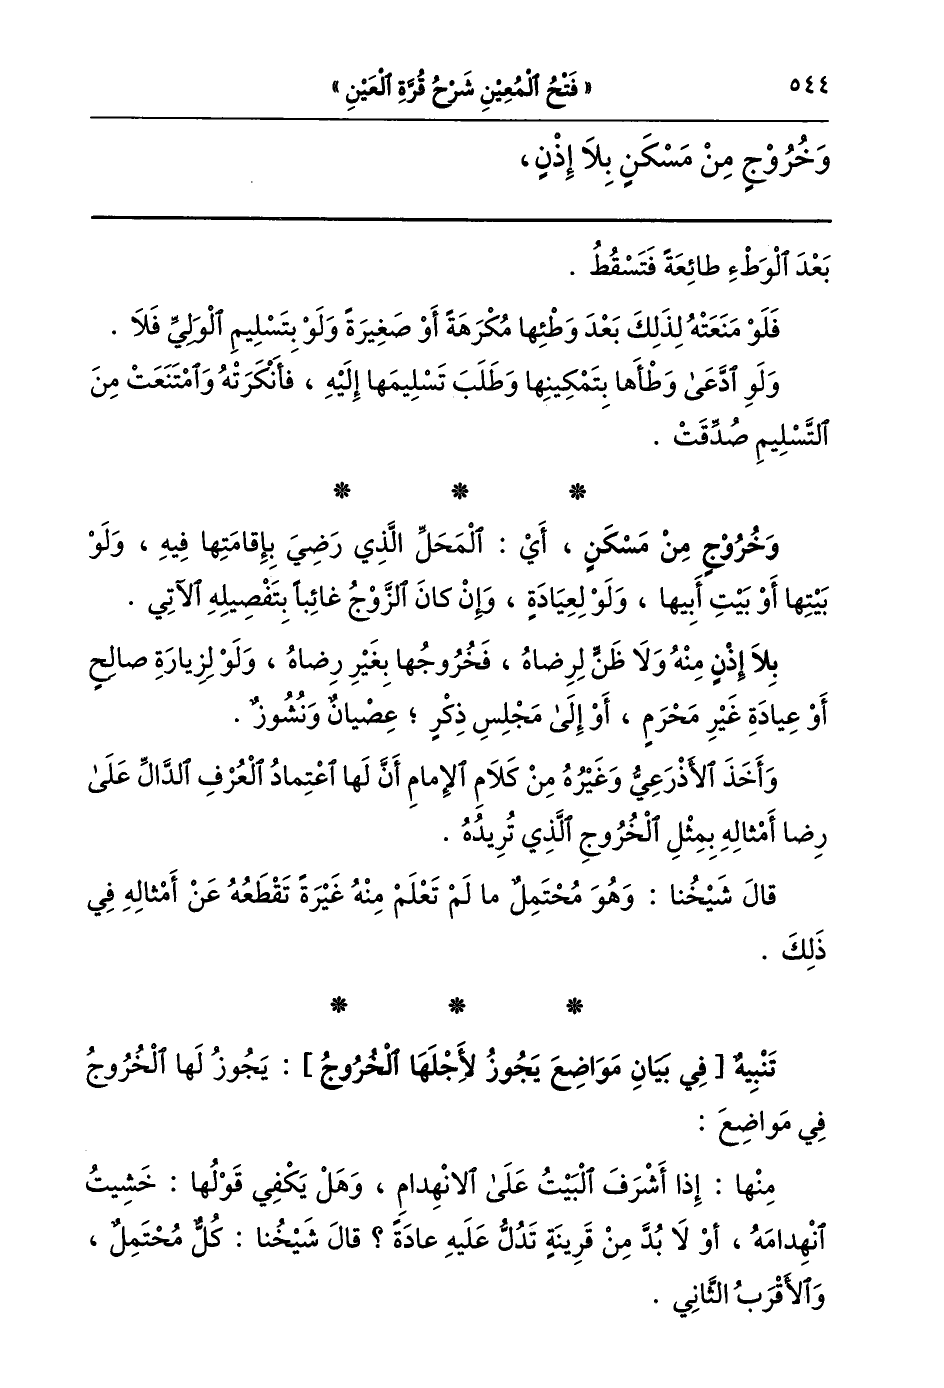 ٥٤٤ « فَتْحُ ٱلْمُعِيْنِ شَرْحُ قُرَّةِ ٱلْعَيْنِ »
وَخُرُوْجٍ مِنْ مَسْكَنٍ بِلَا إِذْنٍ،
بَعْدَ ٱلْوَطْءِ طائِعَةً فَتَسْقُطُ .
فَلَوْ مَنَعَتْهُ لِذَلِكَ بَعْدَ وَطْئِها مُكْرَهَةً أَوْ صَغِيرَةً وَلَوْ بِتَسْلِيمِ ٱلْوَلِيِّ فَلَا .
وَلَوِ ٱدَّعَىٰ وَطْأَها بِتَمْكِينِها وَطَلَبَ تَسْلِيمَها إِلَيْهِ ، فأَنْكَرَتْهُ وَٱمْتَنَعَتْ مِنَ
ٱلتَّسْلِيمِ صُدِّقَتْ .
* * *
وَخُرُوْجٍ مِنْ مَسْكَنٍ ، أَيْ : ٱلْمَحَلِّ الَّذِي رَضِيَ بِإِقامَتِها فِيهِ ، وَلَوْ
بَيْتِها أَوْ بَيْتِ أَبِيها ، وَلَوْ لِعِيَادَةٍ ، وَإِنْ كانَ ٱلزَّوْجُ غائِباً بِتَفْصِيلِهِ ٱلآتِي .
بِلَا إِذْنٍ مِنْهُ وَلَا ظَنٍّ لِرِضاهُ ، فَخُرُوجُها بِغَيْرِ رِضاهُ ، وَلَوْ لِزِيارَةِ صالِحٍ
أَوْ عِيادَةِ غَيْرِ مَحْرَمٍ ، أَوْ إِلَىٰ مَجْلِسِ ذِكْرٍ ؛ عِصْيانٌ وَنُشُوزٌ .
وَأَخَذَ ٱلأَذْرَعِيُّ وَغَيْرُهُ مِنْ كَلَامِ ٱلإِمامِ أَنَّ لَها ٱعْتِمادُ ٱلْعُرْفِ ٱلدَّالِّ عَلَىٰ
رِضا أَمْثالِهِ بِمِثْلِ ٱلْخُرُوجِ ٱلَّذِي تُرِيدُهُ .
قالَ شَيْخُنا : وَهُوَ مُحْتَمِلٌ ما لَمْ تَعْلَمْ مِنْهُ غَيْرَةً تَقْطَعُهُ عَنْ أَمْثالِهِ فِي
ذَلِكَ .
* * *
تَنْبِيهٌ [ فِي بَيَانِ مَوَاضِعَ يَجُوزُ لأَجْلَهَا ٱلْخُرُوجُ ] : يَجُوزُ لَها ٱلْخُرُوجُ
فِي مَواضِعَ :
مِنْها : إِذا أَشْرَفَ ٱلْبَيْتُ عَلَىٰ ٱلانْهِدامِ ، وَهَلْ يَكْفِي قَوْلُها : خَشِيتُ
ٱنْهِدامَهُ ، أَوْ لَا بُدَّ مِنْ قَرِينَةٍ تَدُلُّ عَلَيهِ عادَةً ؟ قالَ شَيْخُنا : كُلٌّ مُحْتَمِلٌ ،
وَٱلأَقْرَبُ الثَّانِي .